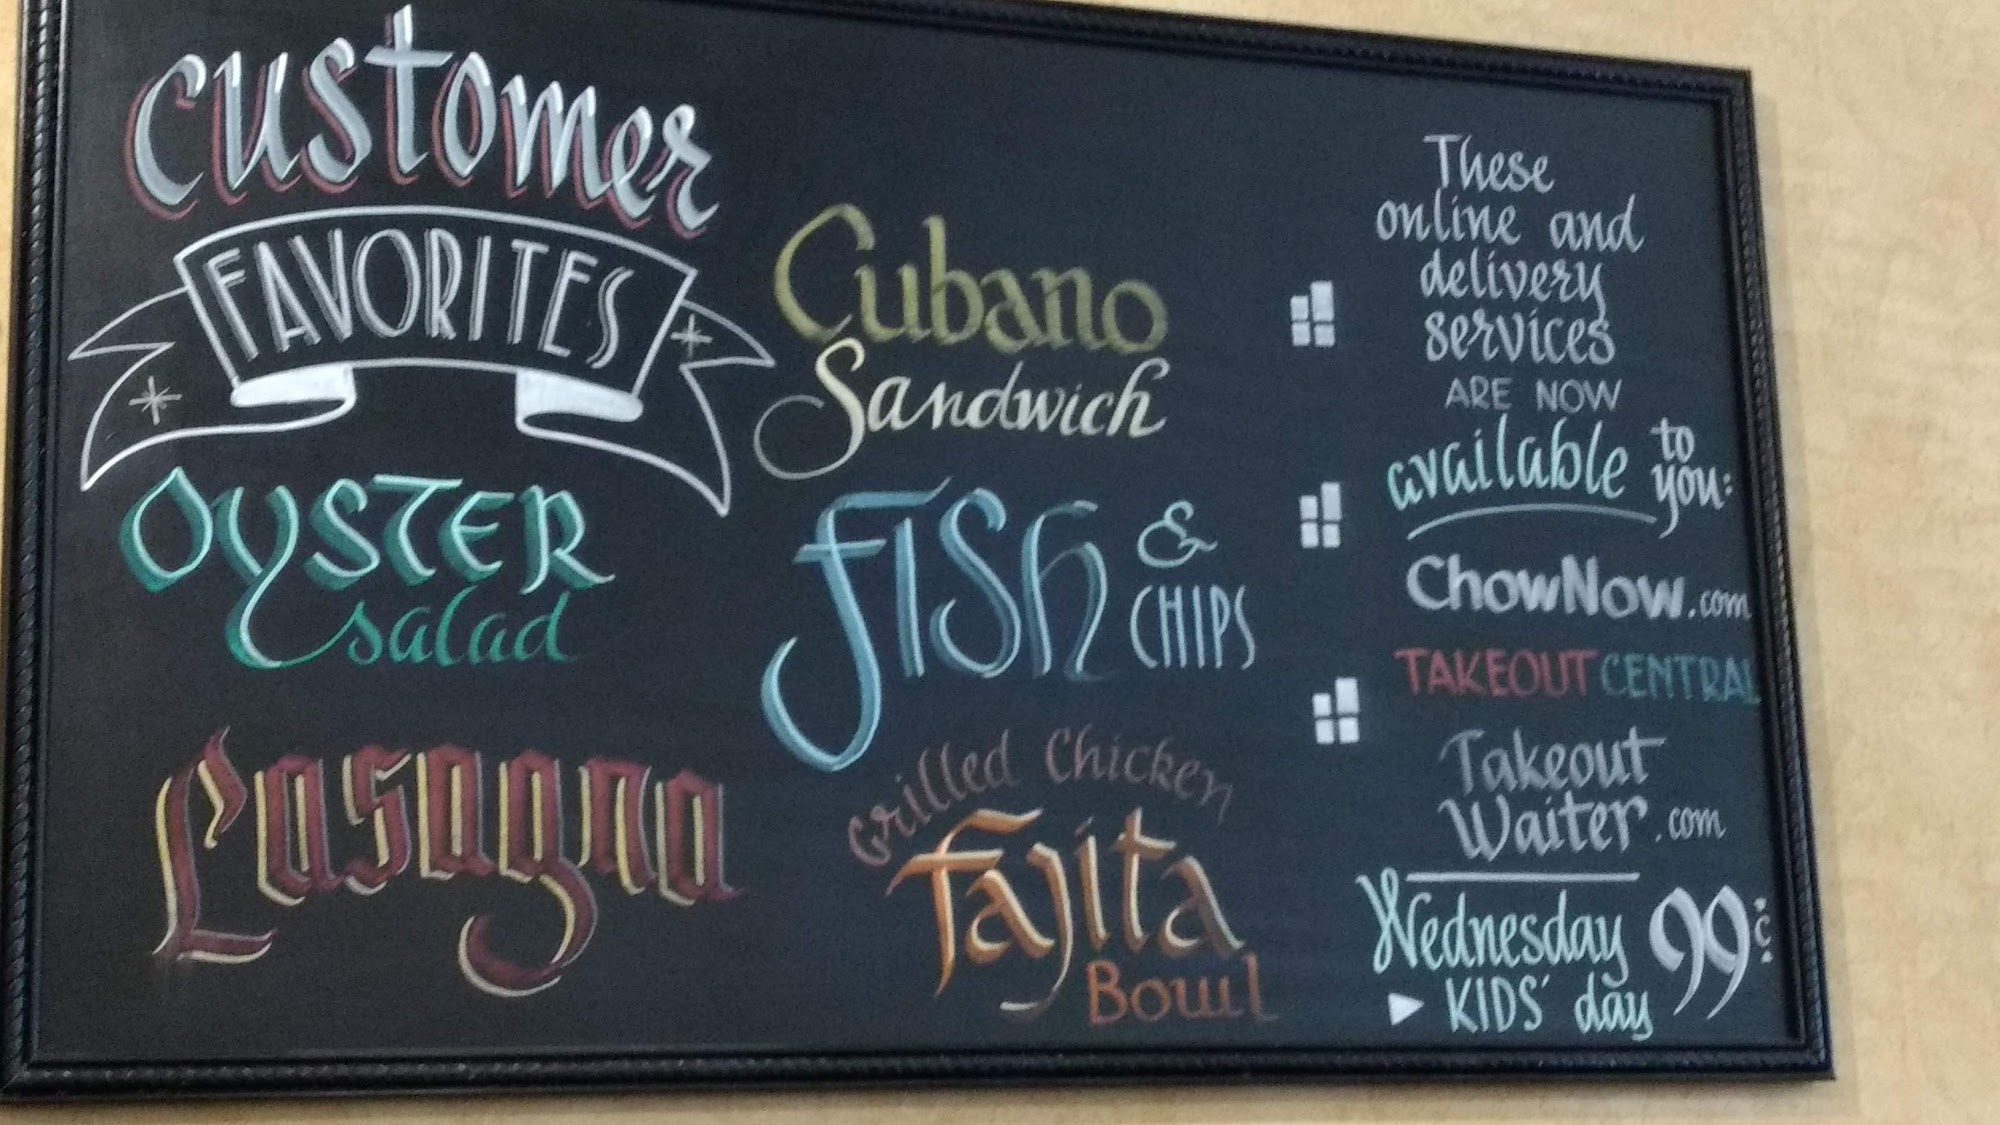 Customer
FAVORITES
OYSTER
salad
Lasagna
Cubano
Sandwich
FISh &
CHIPS
Grilled Chicken
Fajita
Bowl
These
online and
delivery
services
ARE NOW
available to
you:
ChowNow.com
TAKEOUTCENTRAL
Takeout
Waiter.com
Wednesday 99¢
KIDS' day